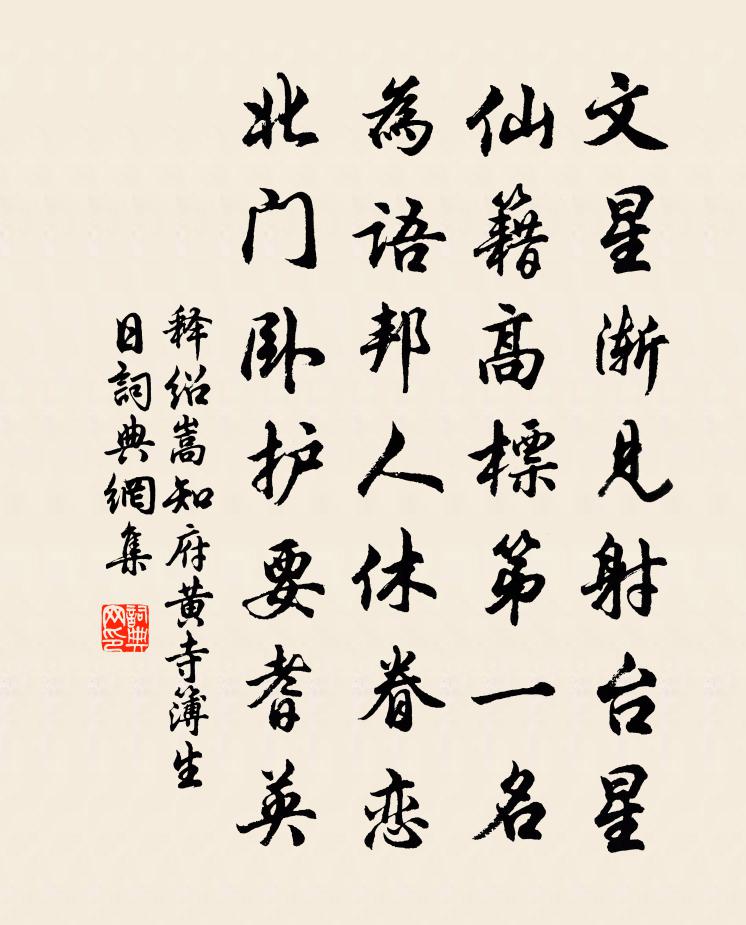 文星渐見射台星
仙籍高標第一名
為語邦人休眷恋
北门卧护要耆英
释绍嵩知府黄寺簿生
日詞典網集
詞典网印